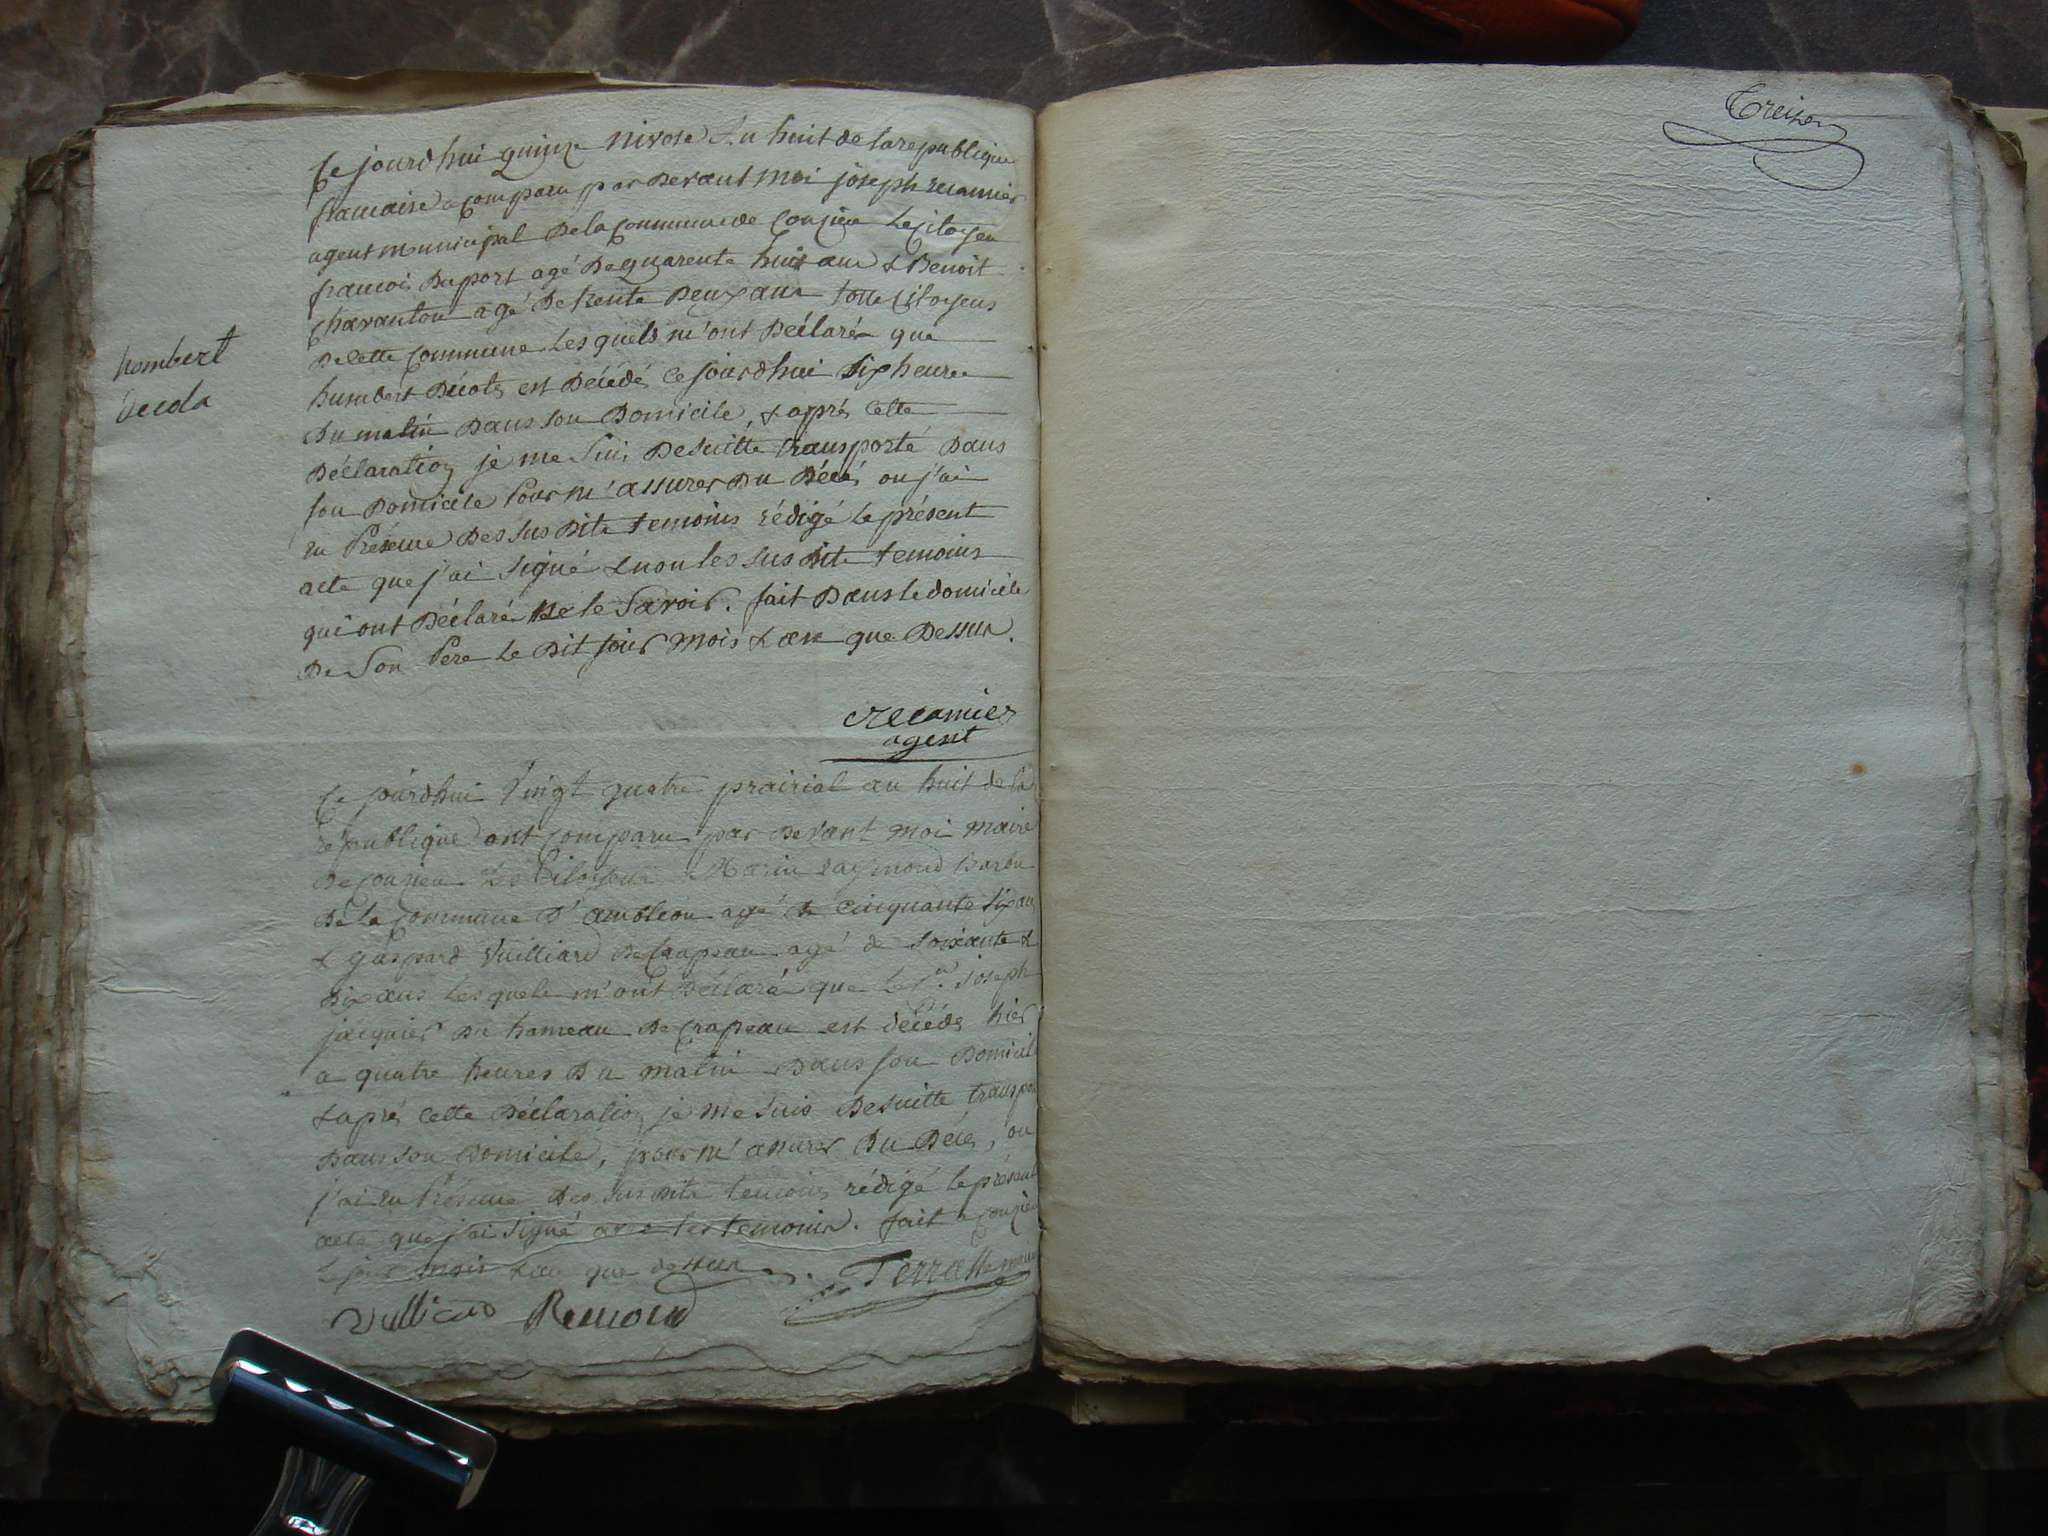 Ce jourdhui quinze nivose an huit de la republique
francaise a comparu par devant moi joseph recamier
agent municipal de la commune de Conzieu le citoyen
francois Duport agé de quarente huit ans & Benoit
Chavanton agé de trente deux ans tous citoyens
de cette commune lesquels m'ont déclaré que
humbert Décota est décédé ce jourdhui six heures
du matin dans son domicile, & aprés cette
déclaration je me suis desuitte transporté dans
son domicile pour m'assurer du décés ou j'ai
en présence des susdits temoins rédigé le présent
acte que j'ai signé & non les susdits temoins
qui ont déclaré ne le savoir. fait dans le domicile
de son Pere le dit jour mois & an que dessus.
hombert
decola
recamier
agent
Ce jourdhui vingt quatre prairial an huit de la
republique ont comparu par devant moi maire
de conzieu les citoyens Marin raymond
de la commune d'ambleon agé de cinquante six ans
& gaspard Vuilliard de Crapeau agé de soixante &
dix ans lesquels m'ont déclaré que le joseph
jacquier du hameau de Crapeau est décédé hier
a quatre heures du matin dans son domicile
& aprés cette déclaration je me suis desuitte transpor
dans son domicile, pour m'assurer du décés, ou
j'ai en présence des susdits temoins rédigé le présent
acte que j'ai signé avec les temoins. fait a conzieu
le jour mois & an que dessus.
Terrasse maire
Vulliard Remond
Treize